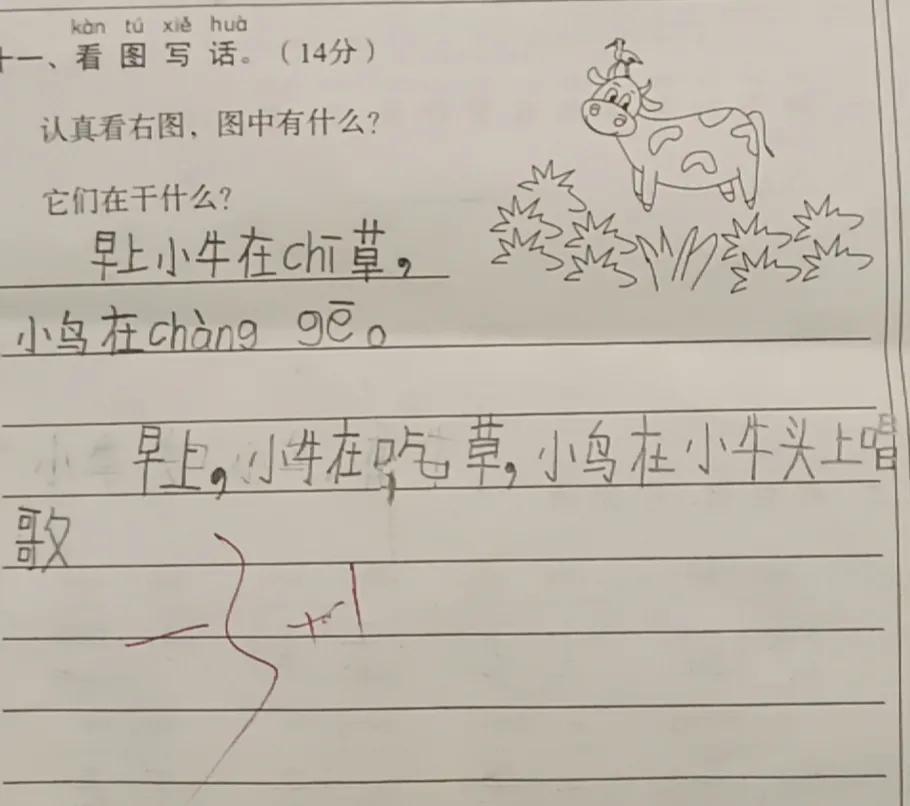 kàn tú xiě huà
十一、看图写话。（14分）
认真看右图，图中有什么？
它们在干什么？
早上小牛在chī草，
小鸟在chàng gē。
早上，小牛在吃草，小鸟在小牛头上唱
歌